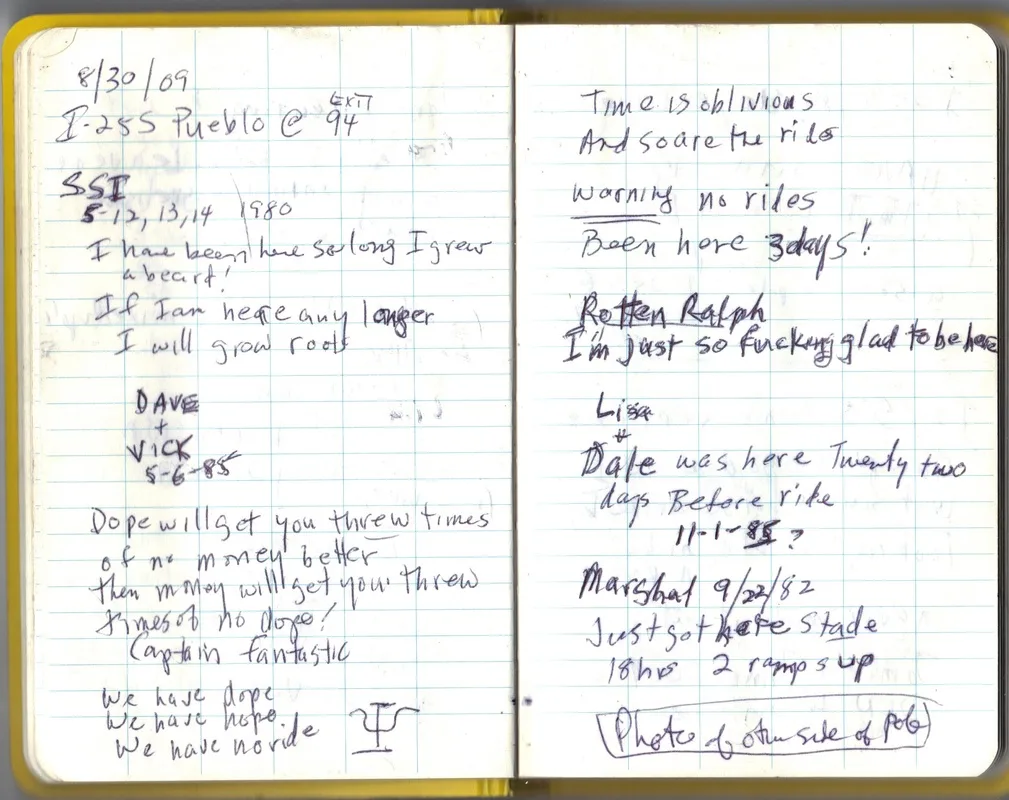 8/30/09
EXIT
I-25S Pueblo @ 94
SSI
5-12, 13, 14 1980
I have been here so long I grew
a beard!
If I am here any longer
I will grow roots
DAVE
+
VICK
5-6-85
Dope will get you threw times
of no money better
then money will get you threw
times of no dope!
Captain fantastic
We have dope
We have hope
We have no ride
Time is oblivious
And so are the rides
Warning no rides
Been here 3 days!
Rotten Ralph
I'm just so fucking glad to be here
Lisa
+
Dale was here Twenty two
days Before ride
11-1-85?
Marshal 9/22/82
Just got here Stade
18 hrs 2 ramps up
Photo of other side of pole